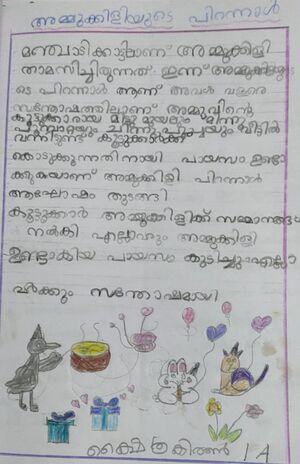 അമ്മുക്കിളിയുടെ പിറന്നാൾ
മഞ്ചാടിക്കാട്ടിലാണ് അമ്മുക്കിളി
താമസിച്ചിരുന്നത്. ഇന്ന് അമ്മുക്കിളിയു
ടെ പിറന്നാൾ ആണ് അവൾ വളരെ
സന്തോഷത്തിലാണ് അമ്മുവിന്റെ
കൂട്ടുക്കാരായ മിട്ടു മുയലും മിന്നു
പൂമ്പാറ്റയും ചിന്നു പൂച്ചയും വീട്ടിൽ
വന്നിട്ടുണ്ട് കൂട്ടുക്കാർക്ക്
കൊടുക്കുന്നതിനായി പായസം ഉണ്ടാ
ക്കുകയാണ് അമ്മുക്കിളി പിറന്നാൾ
ആഘോഷം തുടങ്ങി
കൂട്ടുക്കാർ അമ്മുക്കിളിക്ക് സമ്മാനങ്ങൾ
നൽകി എല്ലാവരും അമ്മുക്കിളി
ഉണ്ടാകിയ പായസം കുടിച്ചു എല്ലാ
വർക്കും സന്തോഷമായി
1 A